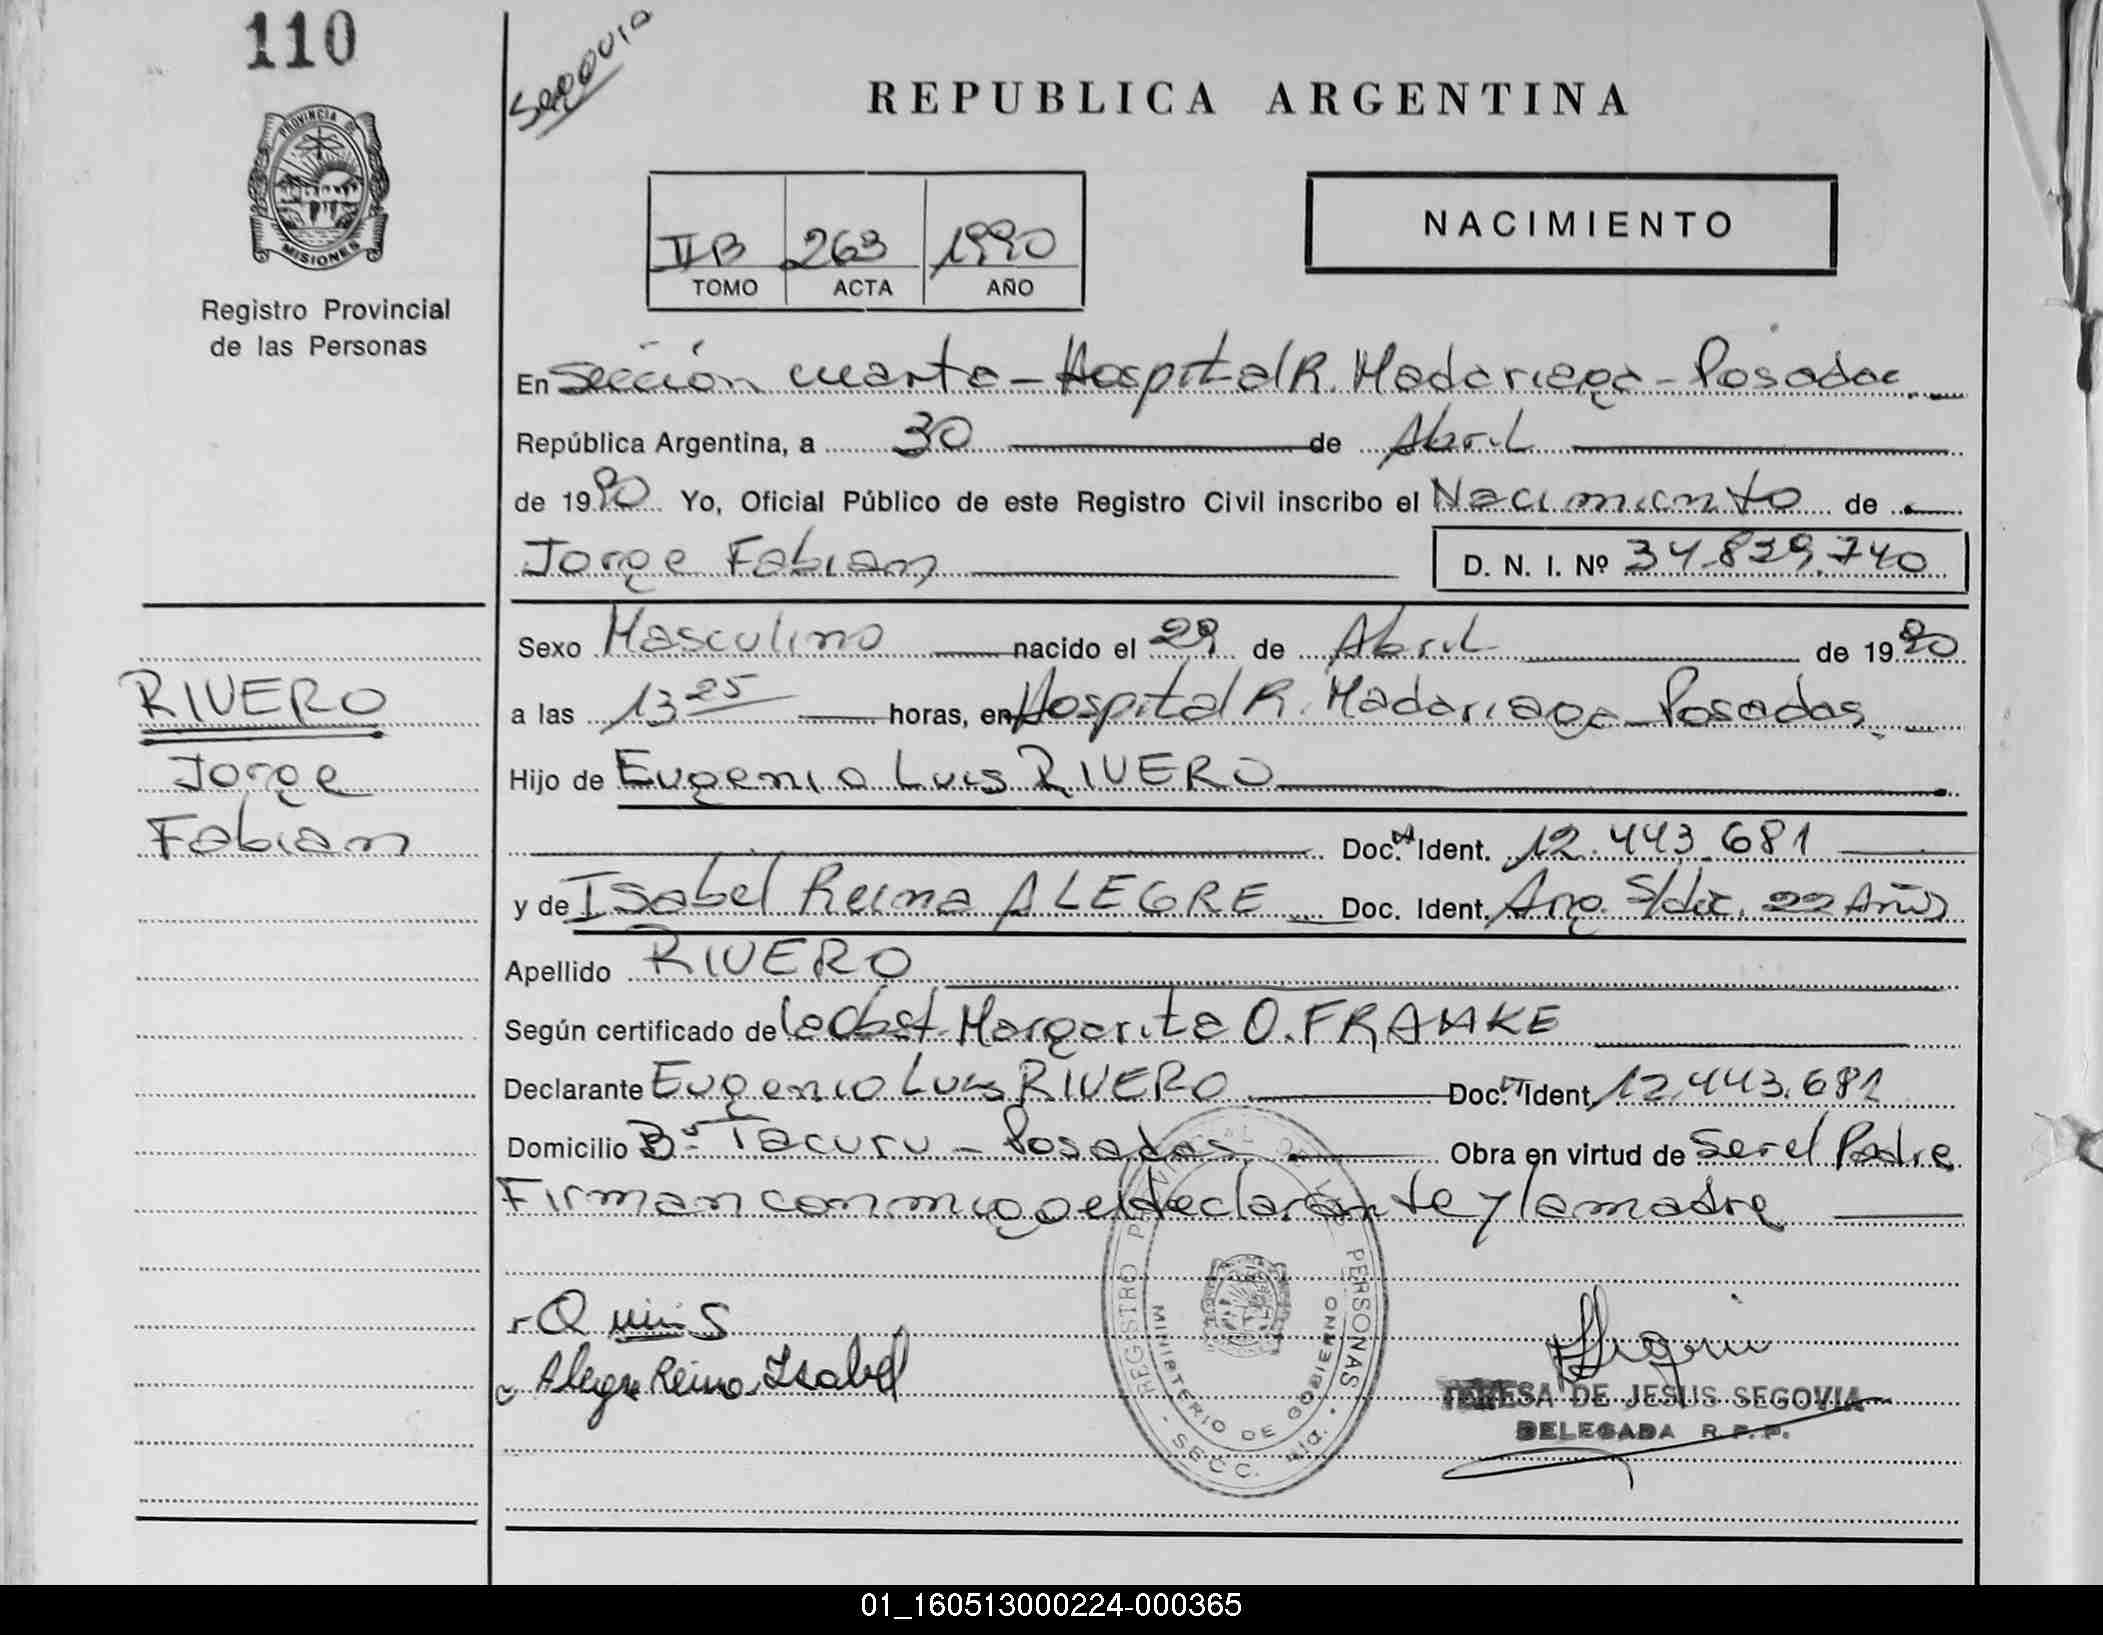 110
Segovia
REPUBLICA ARGENTINA
PROVINCIA DE
MISIONES
Registro Provincial
de las Personas
II B 263 1990
TOMO ACTA AÑO
NACIMIENTO
En Sección cuarta - Hospital R. Madariaga - Posadas
República Argentina, a 30 de Abril
de 1990 Yo, Oficial Público de este Registro Civil inscribo el Nacimiento de
Jorge Fabian D. N. I. Nº 34.829.740
Sexo Masculino nacido el 29 de Abril de 1990
a las 13 25 horas, en Hospital R. Madariaga - Posadas
Hijo de Eugenio Luis RIVERO
Doc. Ident. 12.443.681
y de Isabel Reina ALEGRE Doc. Ident. Arg. S/doc. 22 Años
Apellido RIVERO
Según certificado de la Obst. Margarita O. FRANKE
Declarante Eugenio Luis RIVERO Doc. Ident. 12.443.681
Domicilio Bº Tacuru - Posadas Obra en virtud de Ser el Padre
Firman conmigo el declarante y la madre
RIVERO
Jorge
Fabian
Alegre Reina Isabel
REGISTRO PROVINCIAL DE LAS PERSONAS
MINISTERIO DE GOBIERNO
SECC. 4ta.
TERESA DE JESUS SEGOVIA
DELEGADA R.P.P.
01_160513000224-000365